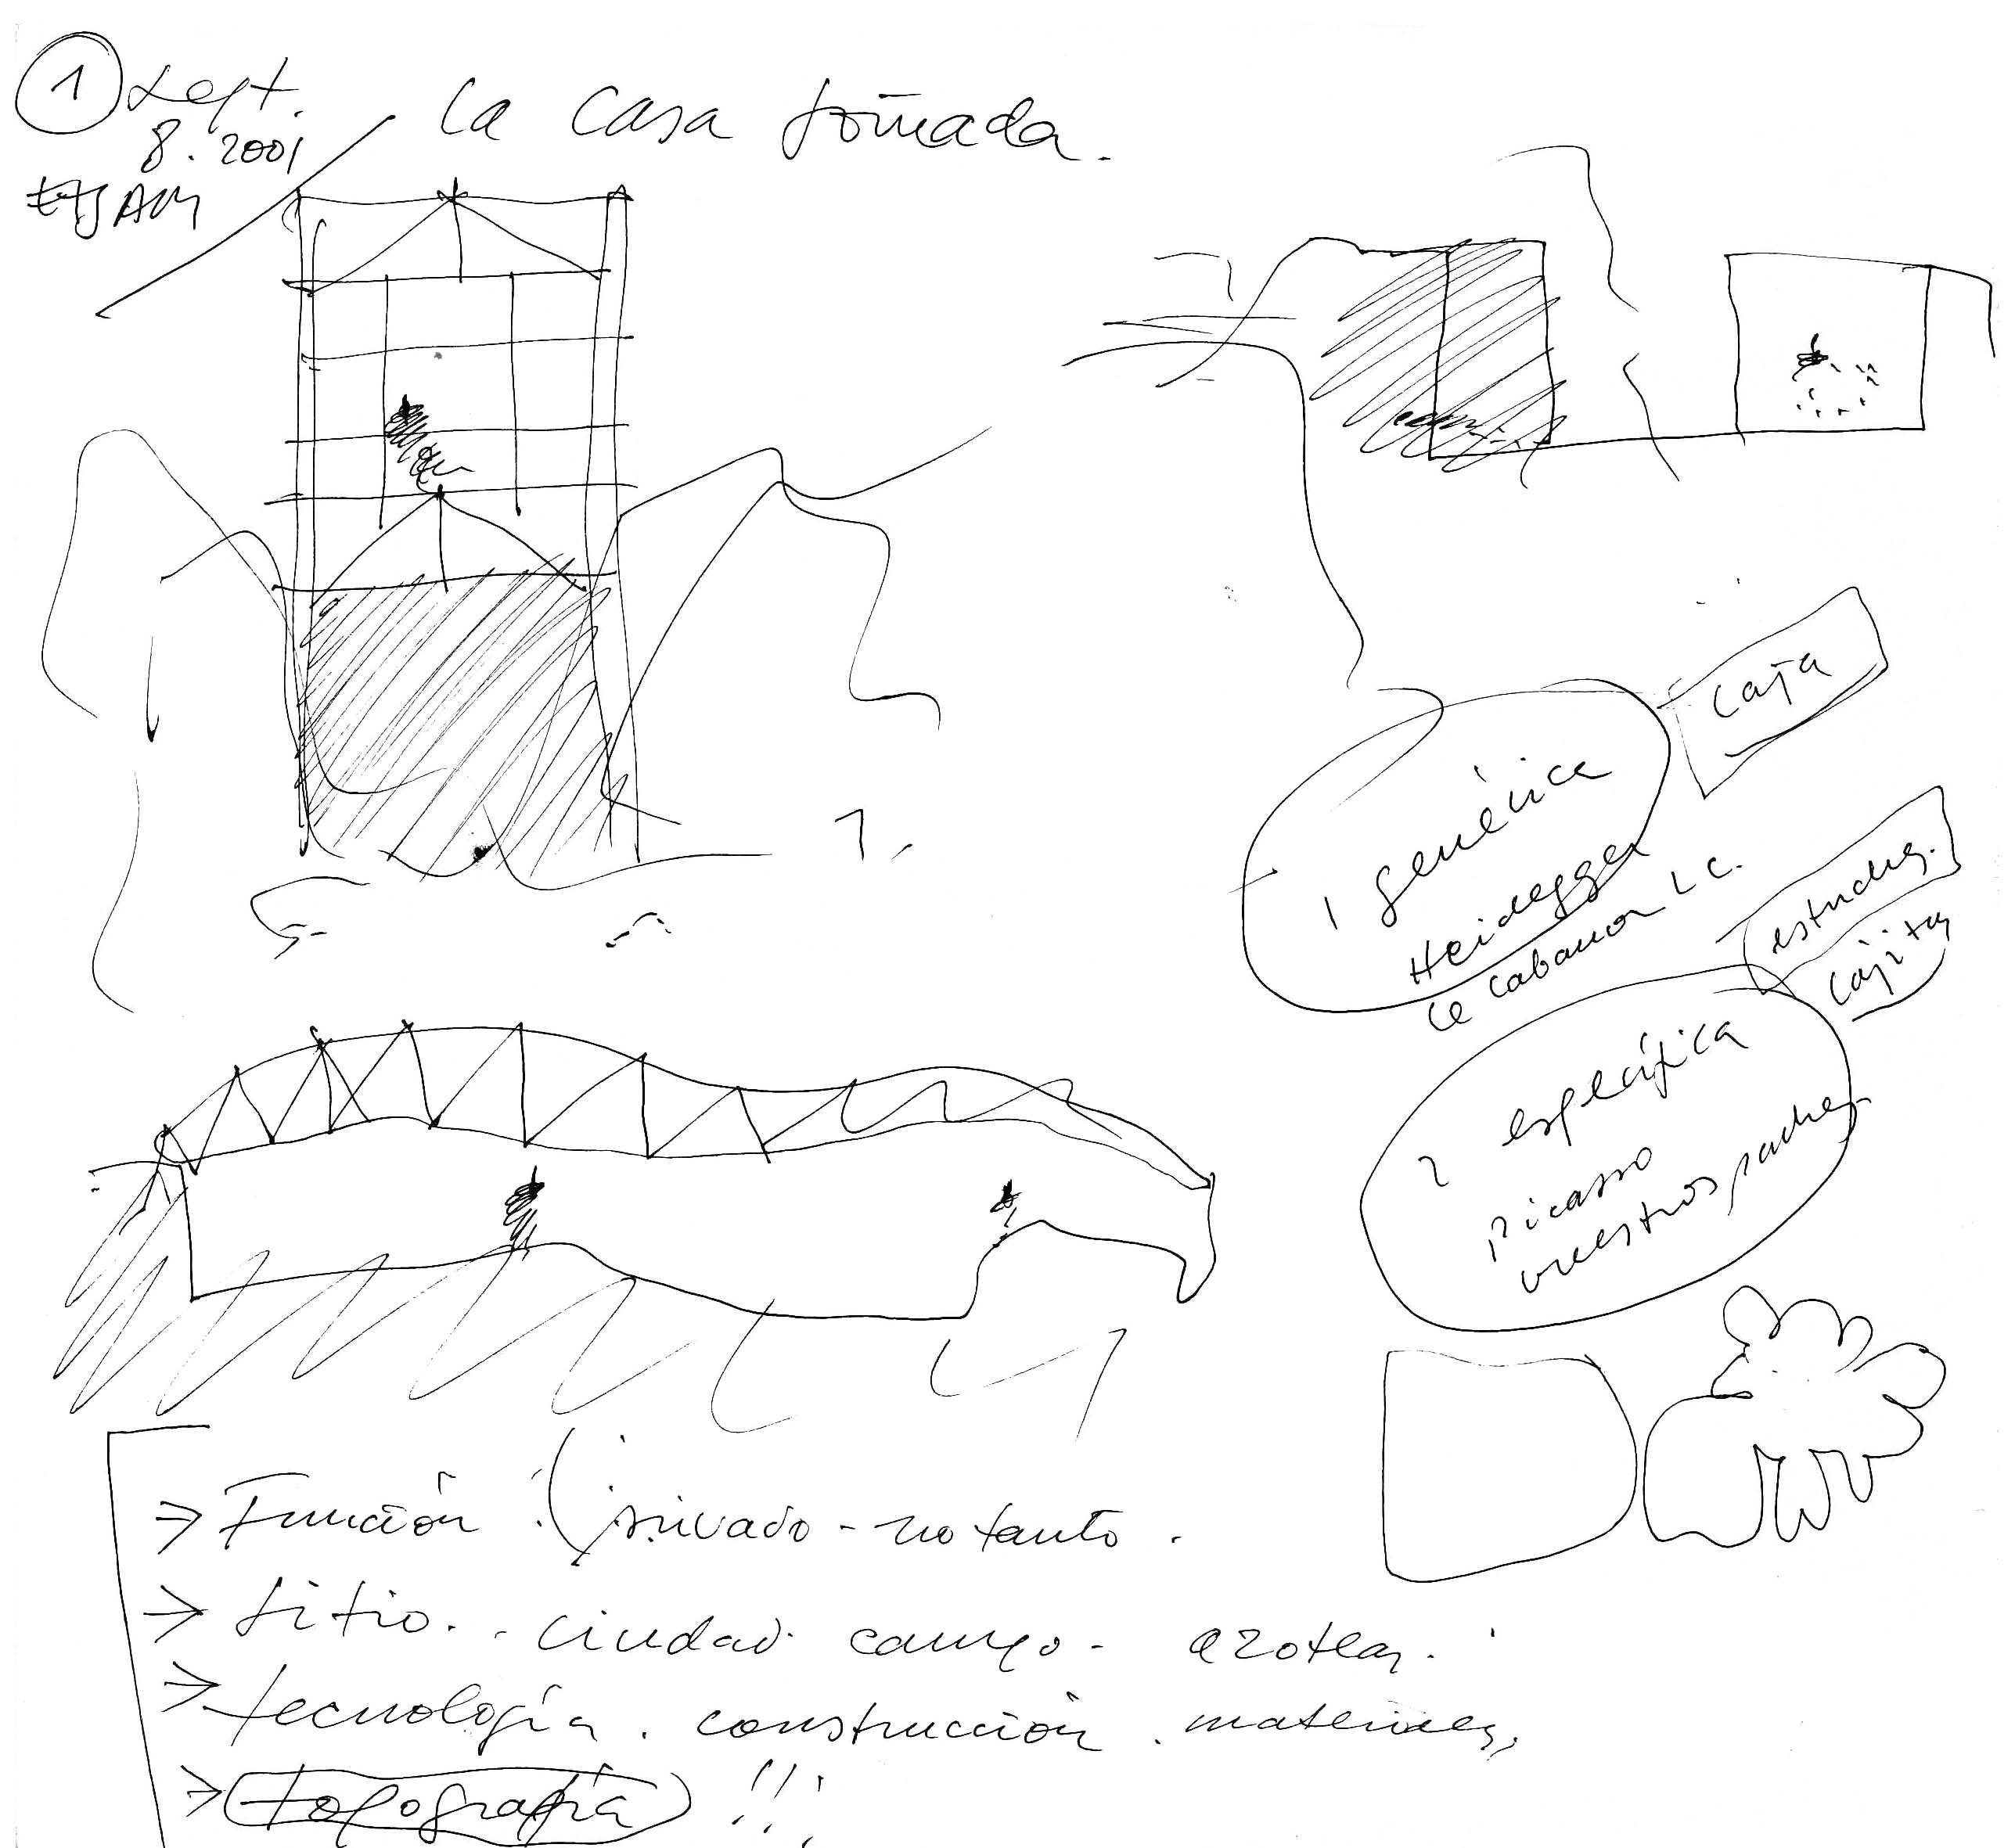 1 Sept.
8. 2001
ETSAM
La casa soñada.
caja
1 genérica
Heidegger
Le cabanon L C.
estudios.
cajitas
2 específica
Picasso
nuestros padres
→ Función : ( privado - no tanto .
→ sitio. . ciudad. campo - azoteas.
→ tecnología . construcción . materiales,
→ topografía !!!